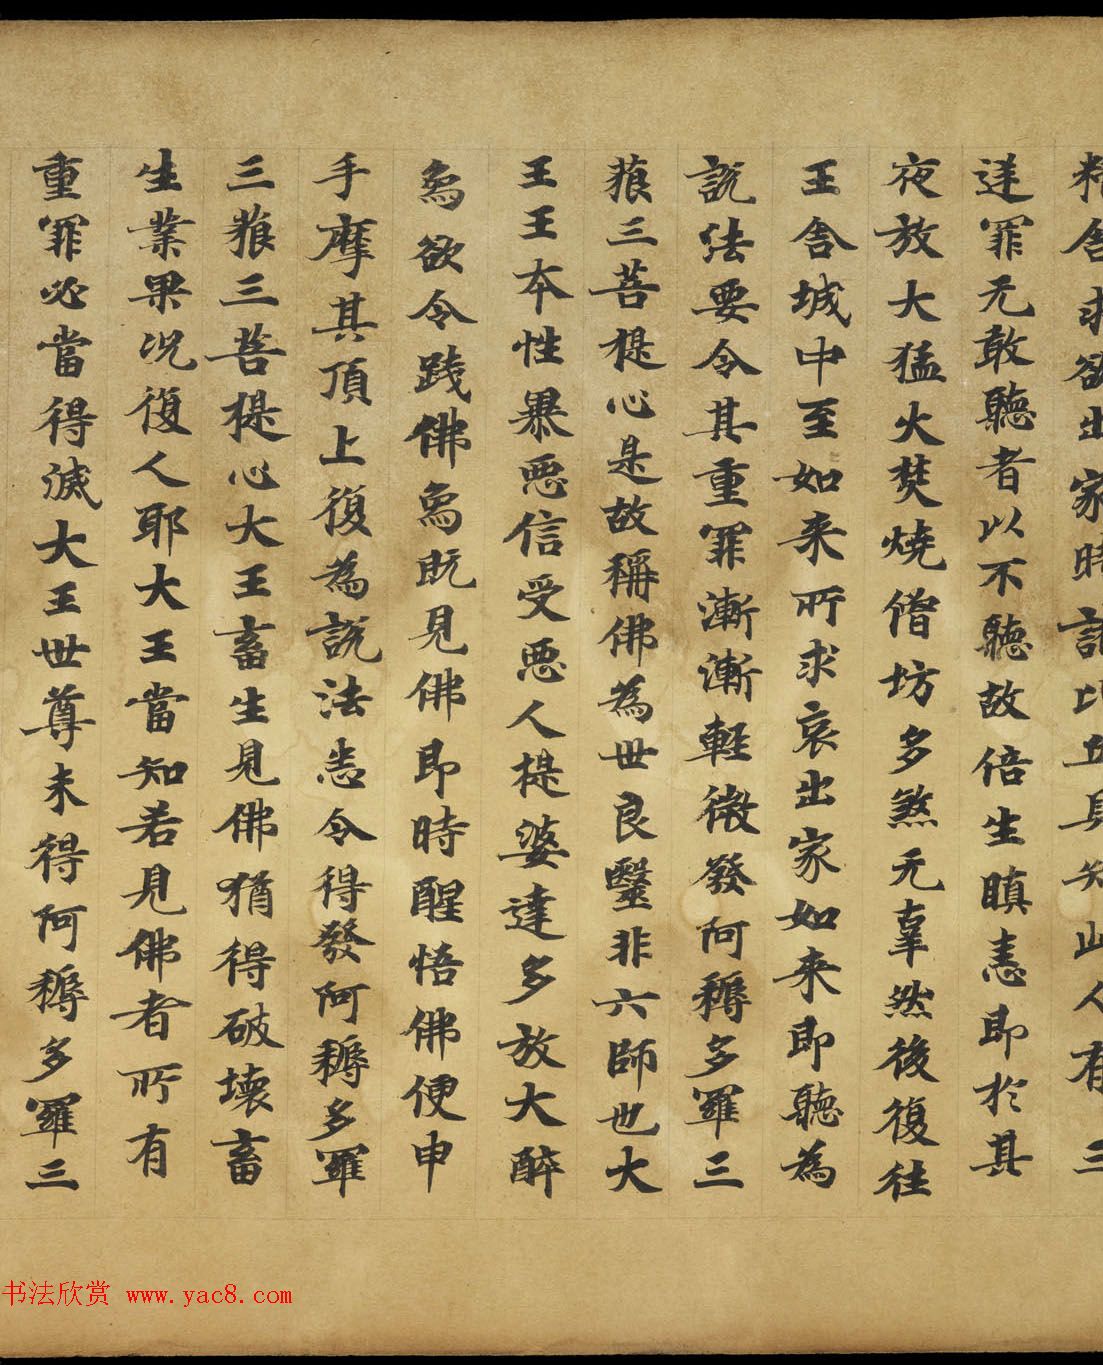 精舍求欲出家時諸比丘具知此人有三
逆罪无敢聽者以不聽故倍生瞋恚即於其
夜放大猛火焚燒僧坊多煞无辜然後復往
王舍城中至如来所求哀出家如来即聽為
說法要令其重罪漸漸輕微發阿耨多羅三
藐三菩提心是故稱佛為世良毉非六師也大
王王本性暴惡信受惡人提婆達多放大醉
鳥欲令踐佛鳥既見佛即時醒悟佛便申
手摩其頂上復為說法悉令得發阿耨多羅
三藐三菩提心大王畜生見佛猶得破壞畜
生業果況復人耶大王當知若見佛者所有
重罪必當得滅大王世尊未得阿耨多羅三
书法欣赏 www.yac8.com